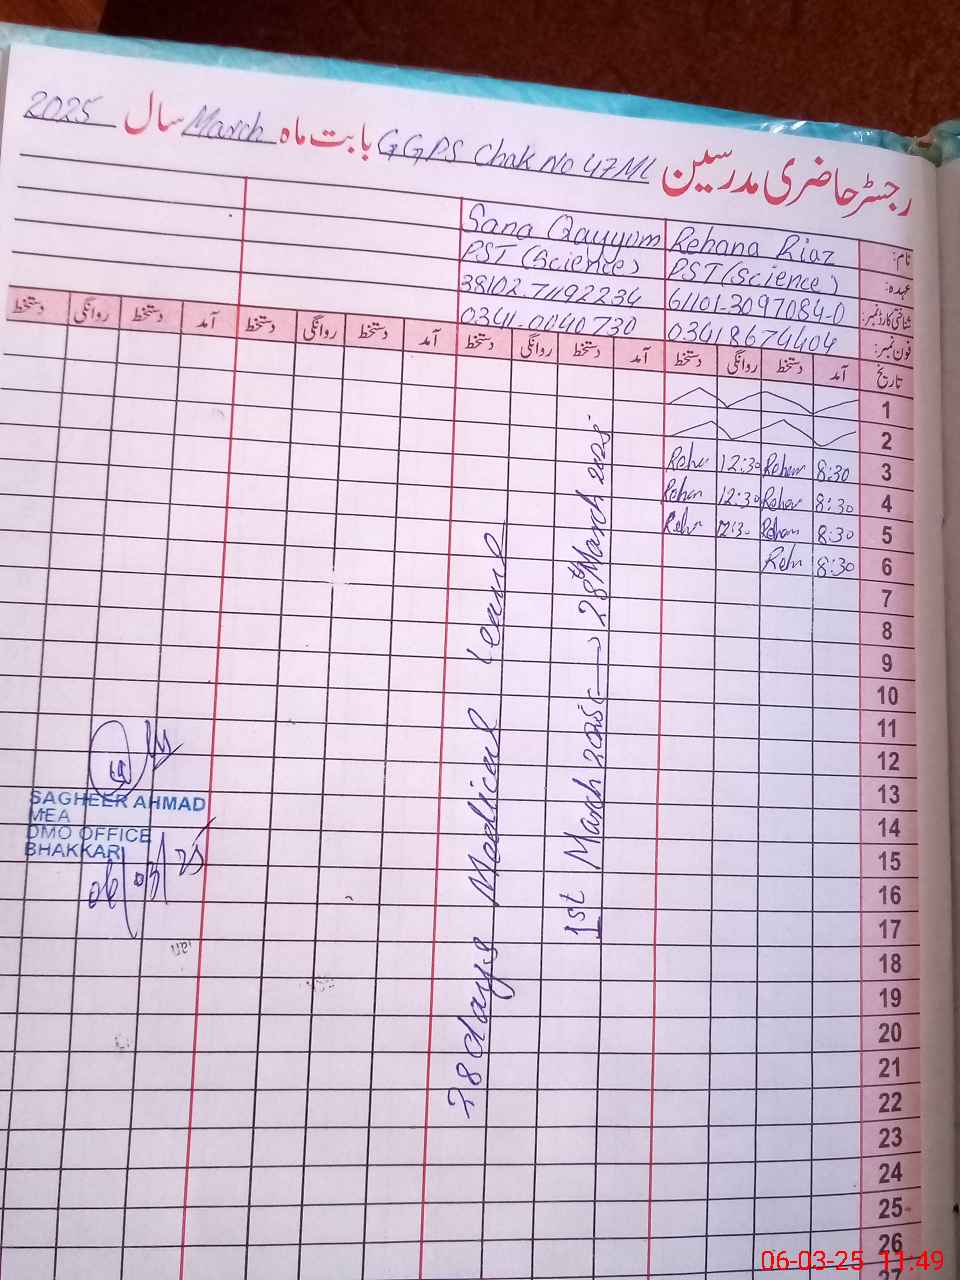 رجسٹر حاضری مدرسین GGPS Chak No 47ML بابت ماہ March سال 2025
نام: Rehana Riaz Sana Qayyom
عہدہ: PST (Science) PST (Science)
شناختی کارڈ نمبر: 61101-3097084-0 38102-7192234
فون نمبر: 03418674404 0341-0040730
تاریخ آمد دستخط روانگی دستخط آمد دستخط روانگی دستخط آمد دستخط روانگی دستخط آمد دستخط روانگی دستخط
1
2
3 8:30 Rehan 12:30 Reha
4 8:30 Rehan 12:30 Rehan
5 8:30 Rehan 12:30 Rehn
6 8:30 Rehn
7
8
9
10
11
12
13
14
15
16
17
18
19
20
21
22
23
24
25
26
28 days Medical leave
1st March 2025 → 28th March 2025
SAGHEER AHMAD
MEA
DMO OFFICE
BHAKKAR
06/03/25
06-03-25 11:49